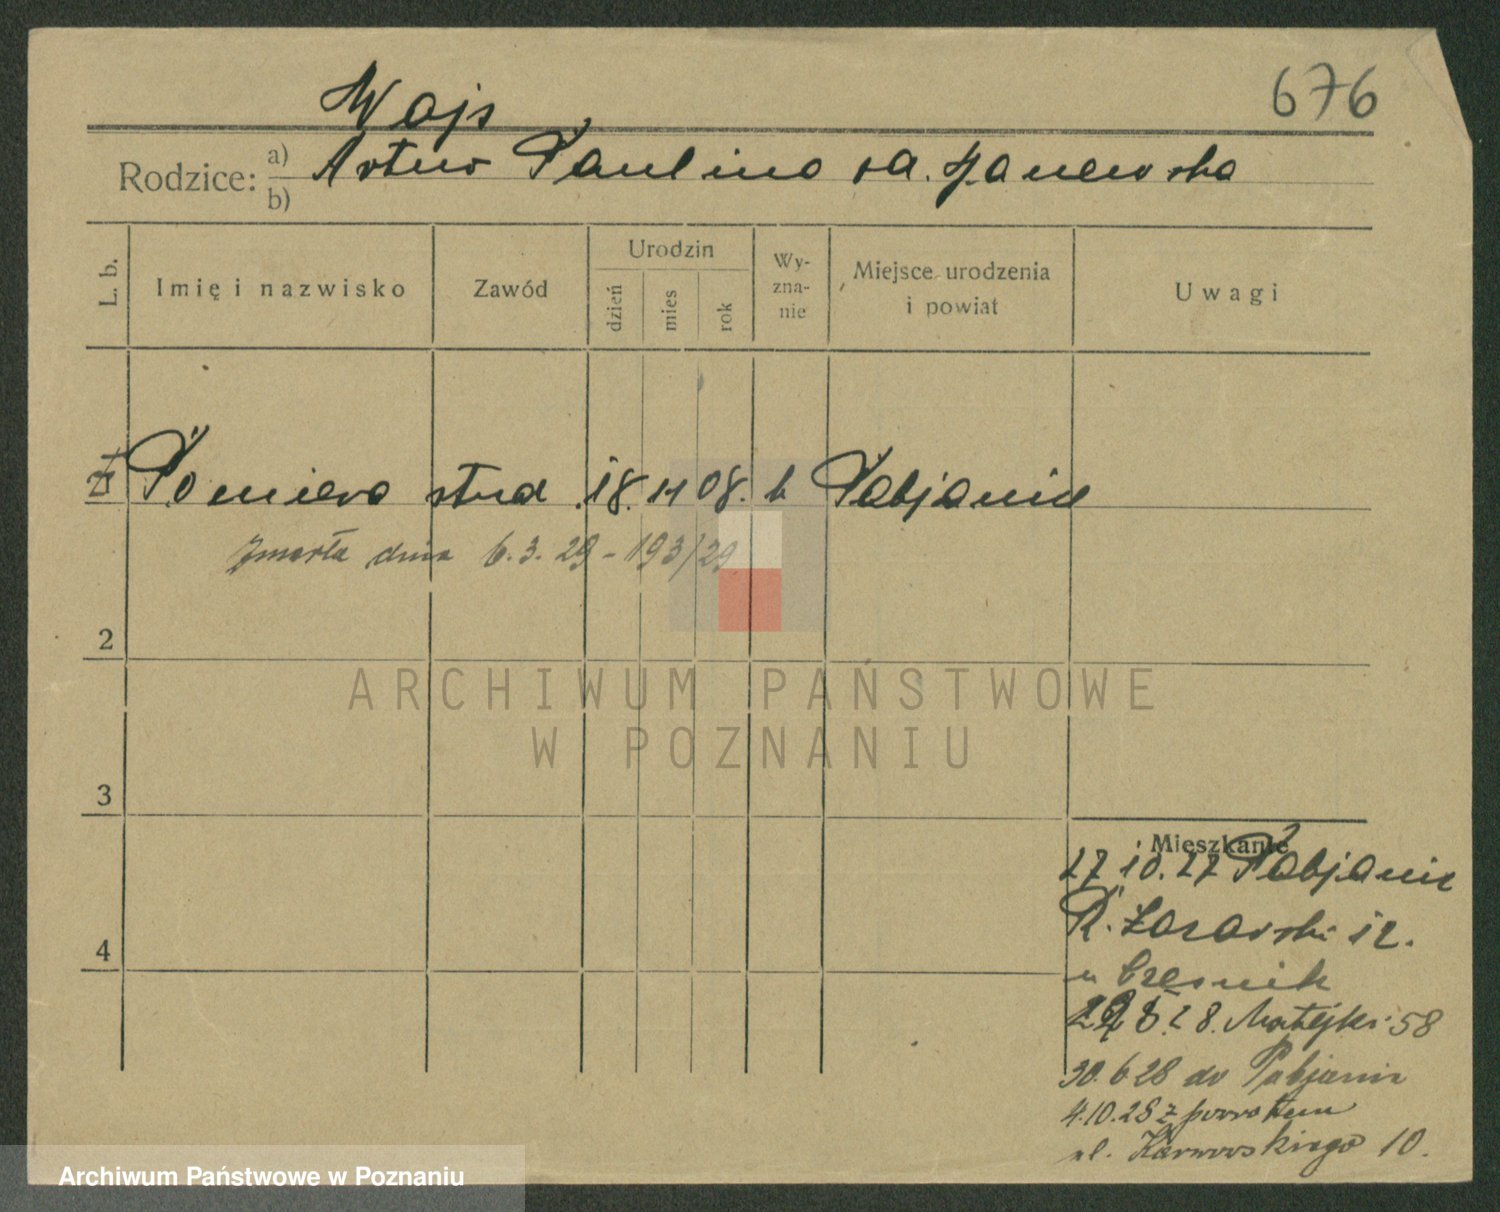 676
Wajs
Rodzice: a) Artur Paulina
b)
L. b. Imię i nazwisko Zawód Urodzin dzień mies rok Wy-zna-nie Miejsce urodzenia i powiat Uwagi
stud 18. 11 08. Pabjanice
Zmarła dnia 6.3.29 - 193/29
2
ARCHIWUM PAŃSTWOWE
W POZNANIU
3
Mieszkanie
27 10. 27 Pabjanic
12.
u Cześnik
28. Matejki 58
30. 6 28 do Pabjanic
4.10.28 z powrotem
ul. Karwowskiego 10.
4
Archiwum Państwowe w Poznaniu